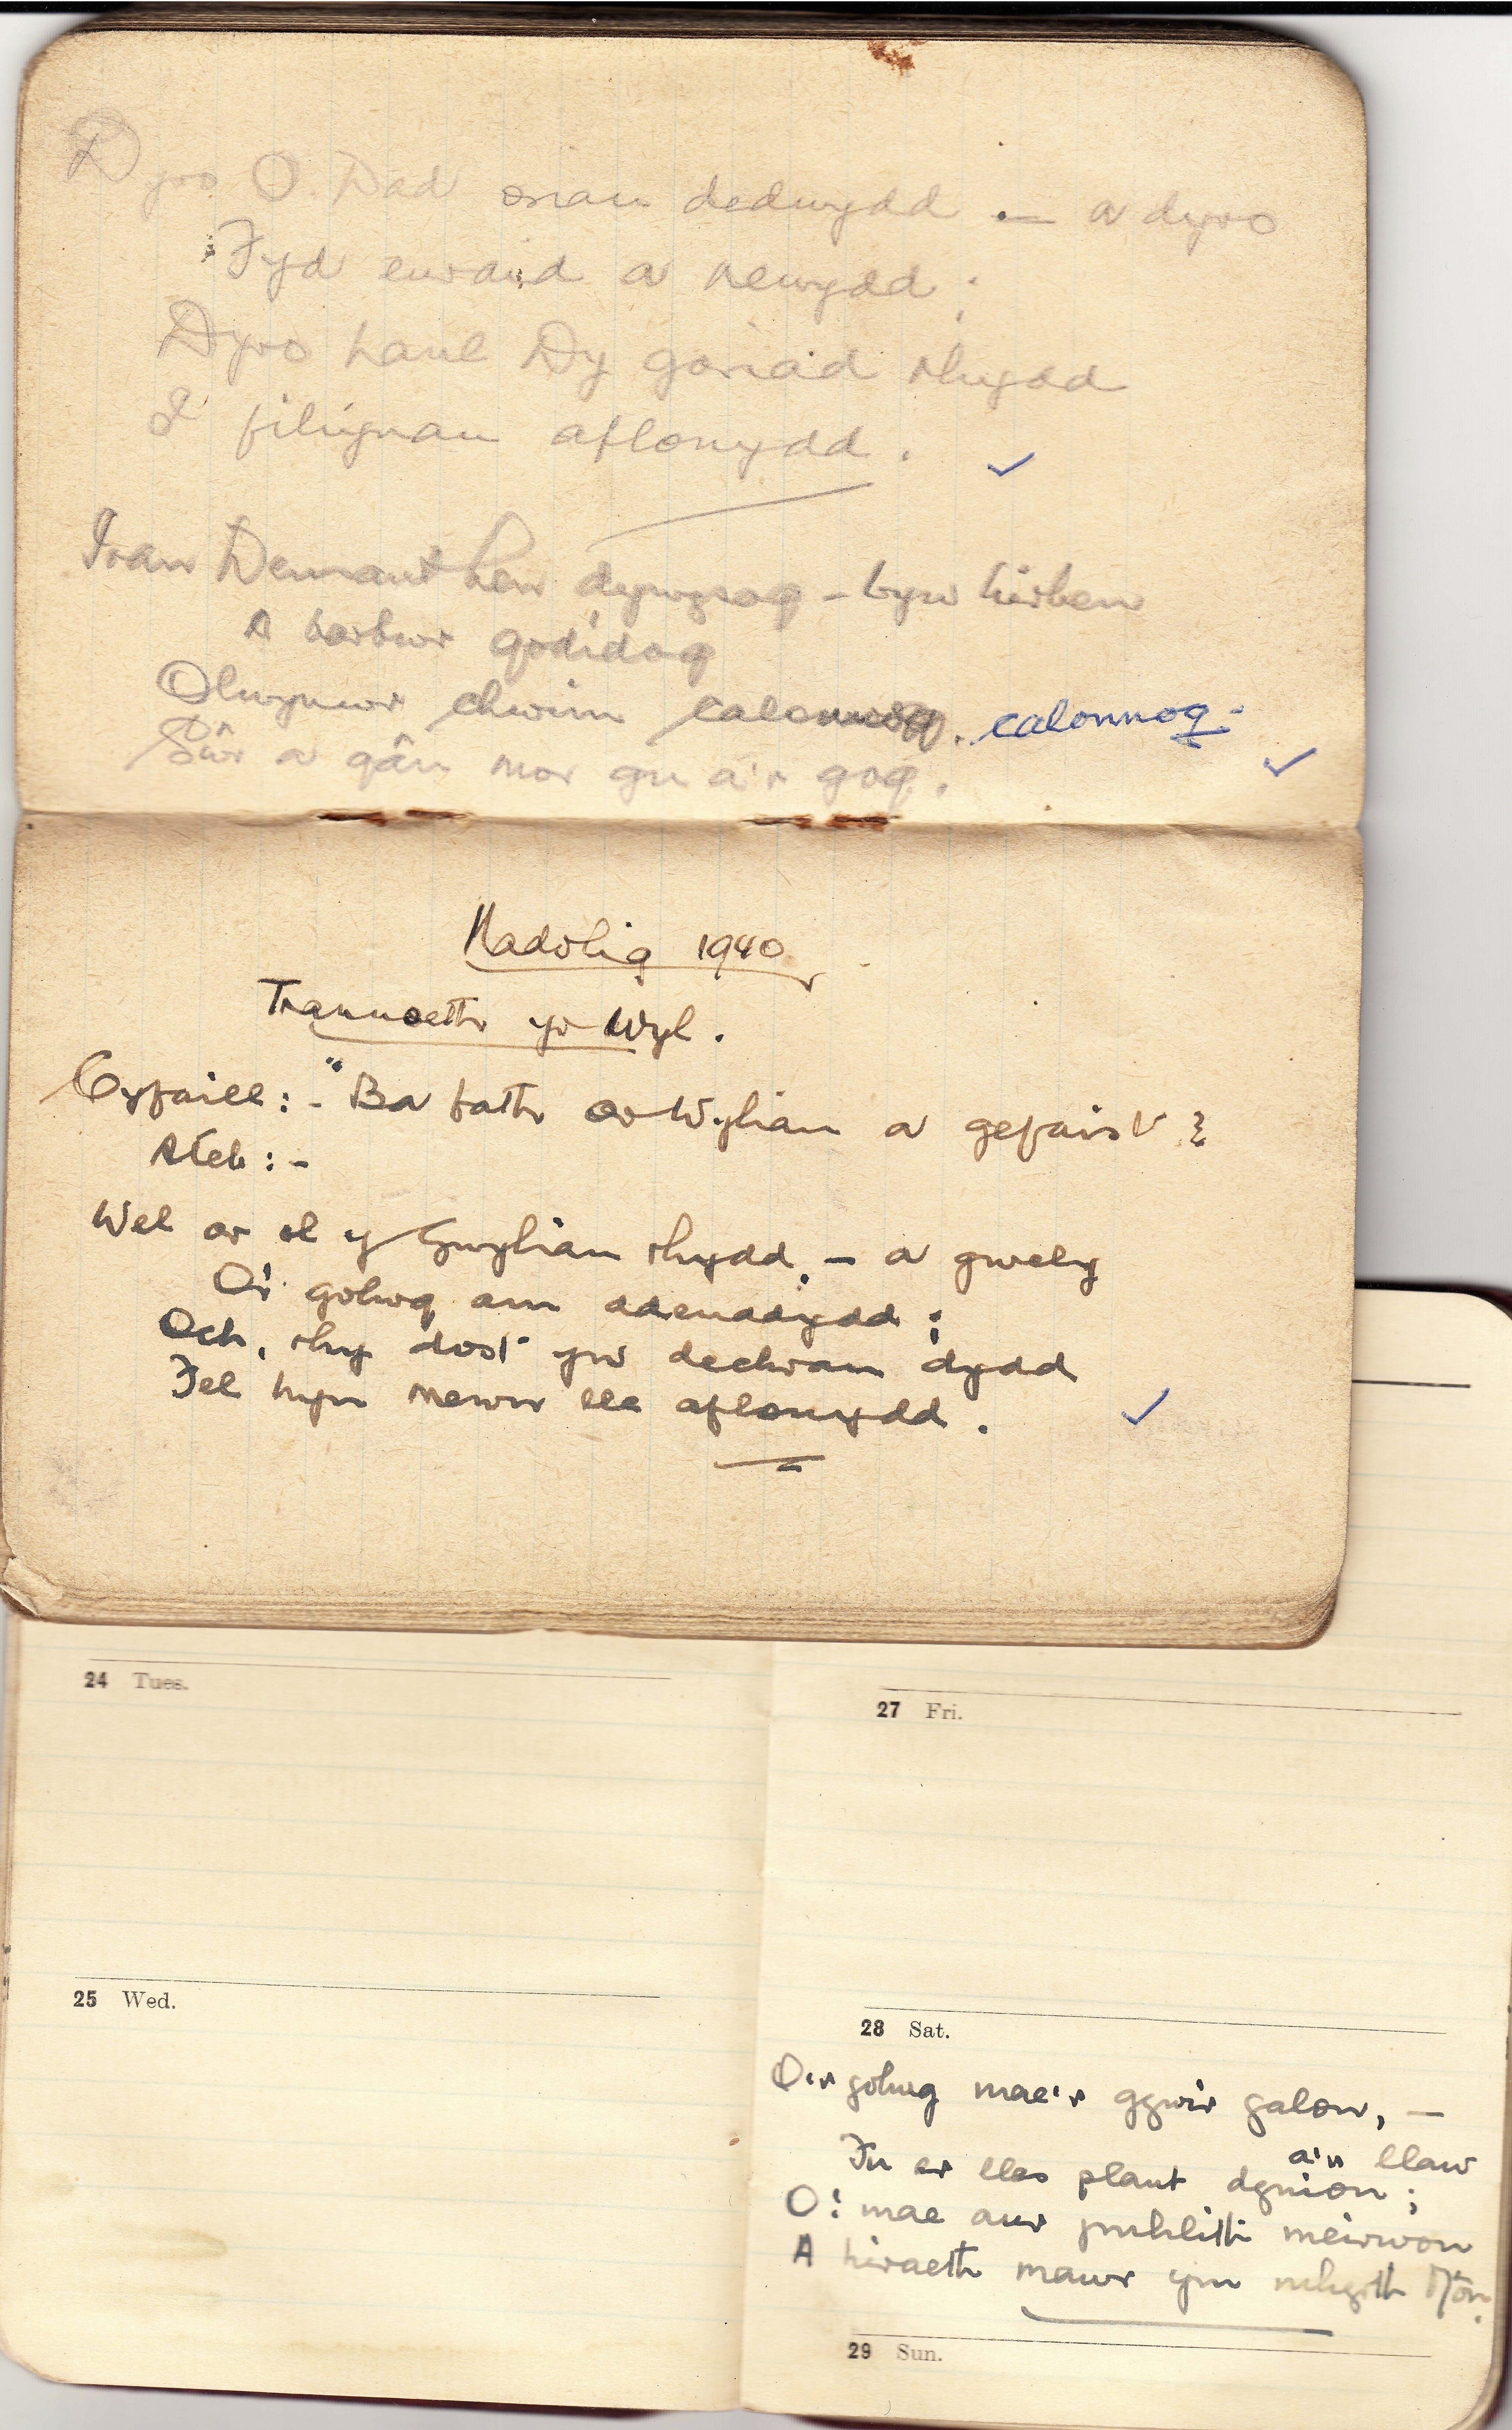 Dyro O. Dad oriau dedwydd — a dyro
Fyd euraid a newydd ;
Dyro haul Dy gariad rhydd
I filiynau aflonydd .
Ivan Dennant hen dywysog - byw hirben
A barbwr godidog
Olwynwr chwim calonnog. calonnog.
Gŵr a gân mor gu a'r gog.
Nadolig 1940
Trannoeth yr Wyl .
Cyfaill :- "Ba fath ar Wyliau a gefaist ?
Ateb :-
Wel ar ol y Gwyliau rhydd, — a gwely
O'i golwg am adenadydd ;
Och, rhy dost yw dechrau dydd
Fel hyn mewn lle aflonydd .
24 Tues.
27 Fri.
25 Wed.
28 Sat.
O'r golwg mae'r gywir galon, —
a'n llaw
Fu er lles plant dynion ;
O! mae aur ymhlith meirwon
A hiraeth mawr ym mhyrth Môn.
29 Sun.